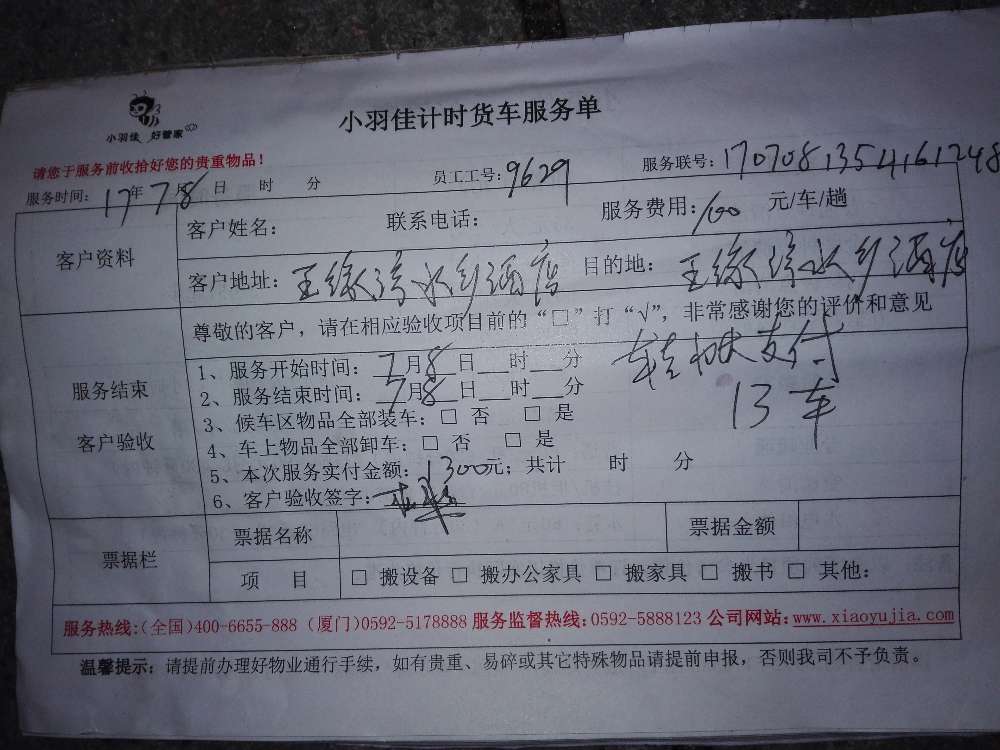 小羽佳 好管家
小羽佳计时货车服务单
请您于服务前收拾好您的贵重物品！
服务时间：17年7月8日 时 分 员工工号：9629 服务联号：1707081354161248
客户资料
客户姓名： 联系电话： 服务费用：100 元/车/趟
客户地址：水乡酒店 目的地：水乡酒店
服务结束
客户验收
尊敬的客户，请在相应验收项目前的“□”打“√”，非常感谢您的评价和意见
1、服务开始时间：7月8日__时__分
2、服务结束时间：7月8日__时__分
支付
13车
3、候车区物品全部装车：□ 否 □ 是
4、车上物品全部卸车：□ 否 □ 是
5、本次服务实付金额：1300元；共计 时 分
6、客户验收签字：
票据栏
票据名称 票据金额
项 目 □ 搬设备 □ 搬办公家具 □ 搬家具 □ 搬书 □ 其他：
服务热线：(全国)400-6655-888 (厦门)0592-5178888 服务监督热线：0592-5888123 公司网站：www.xiaoyujia.com
温馨提示：请提前办理好物业通行手续，如有贵重、易碎或其它特殊物品请提前申报，否则我司不予负责。